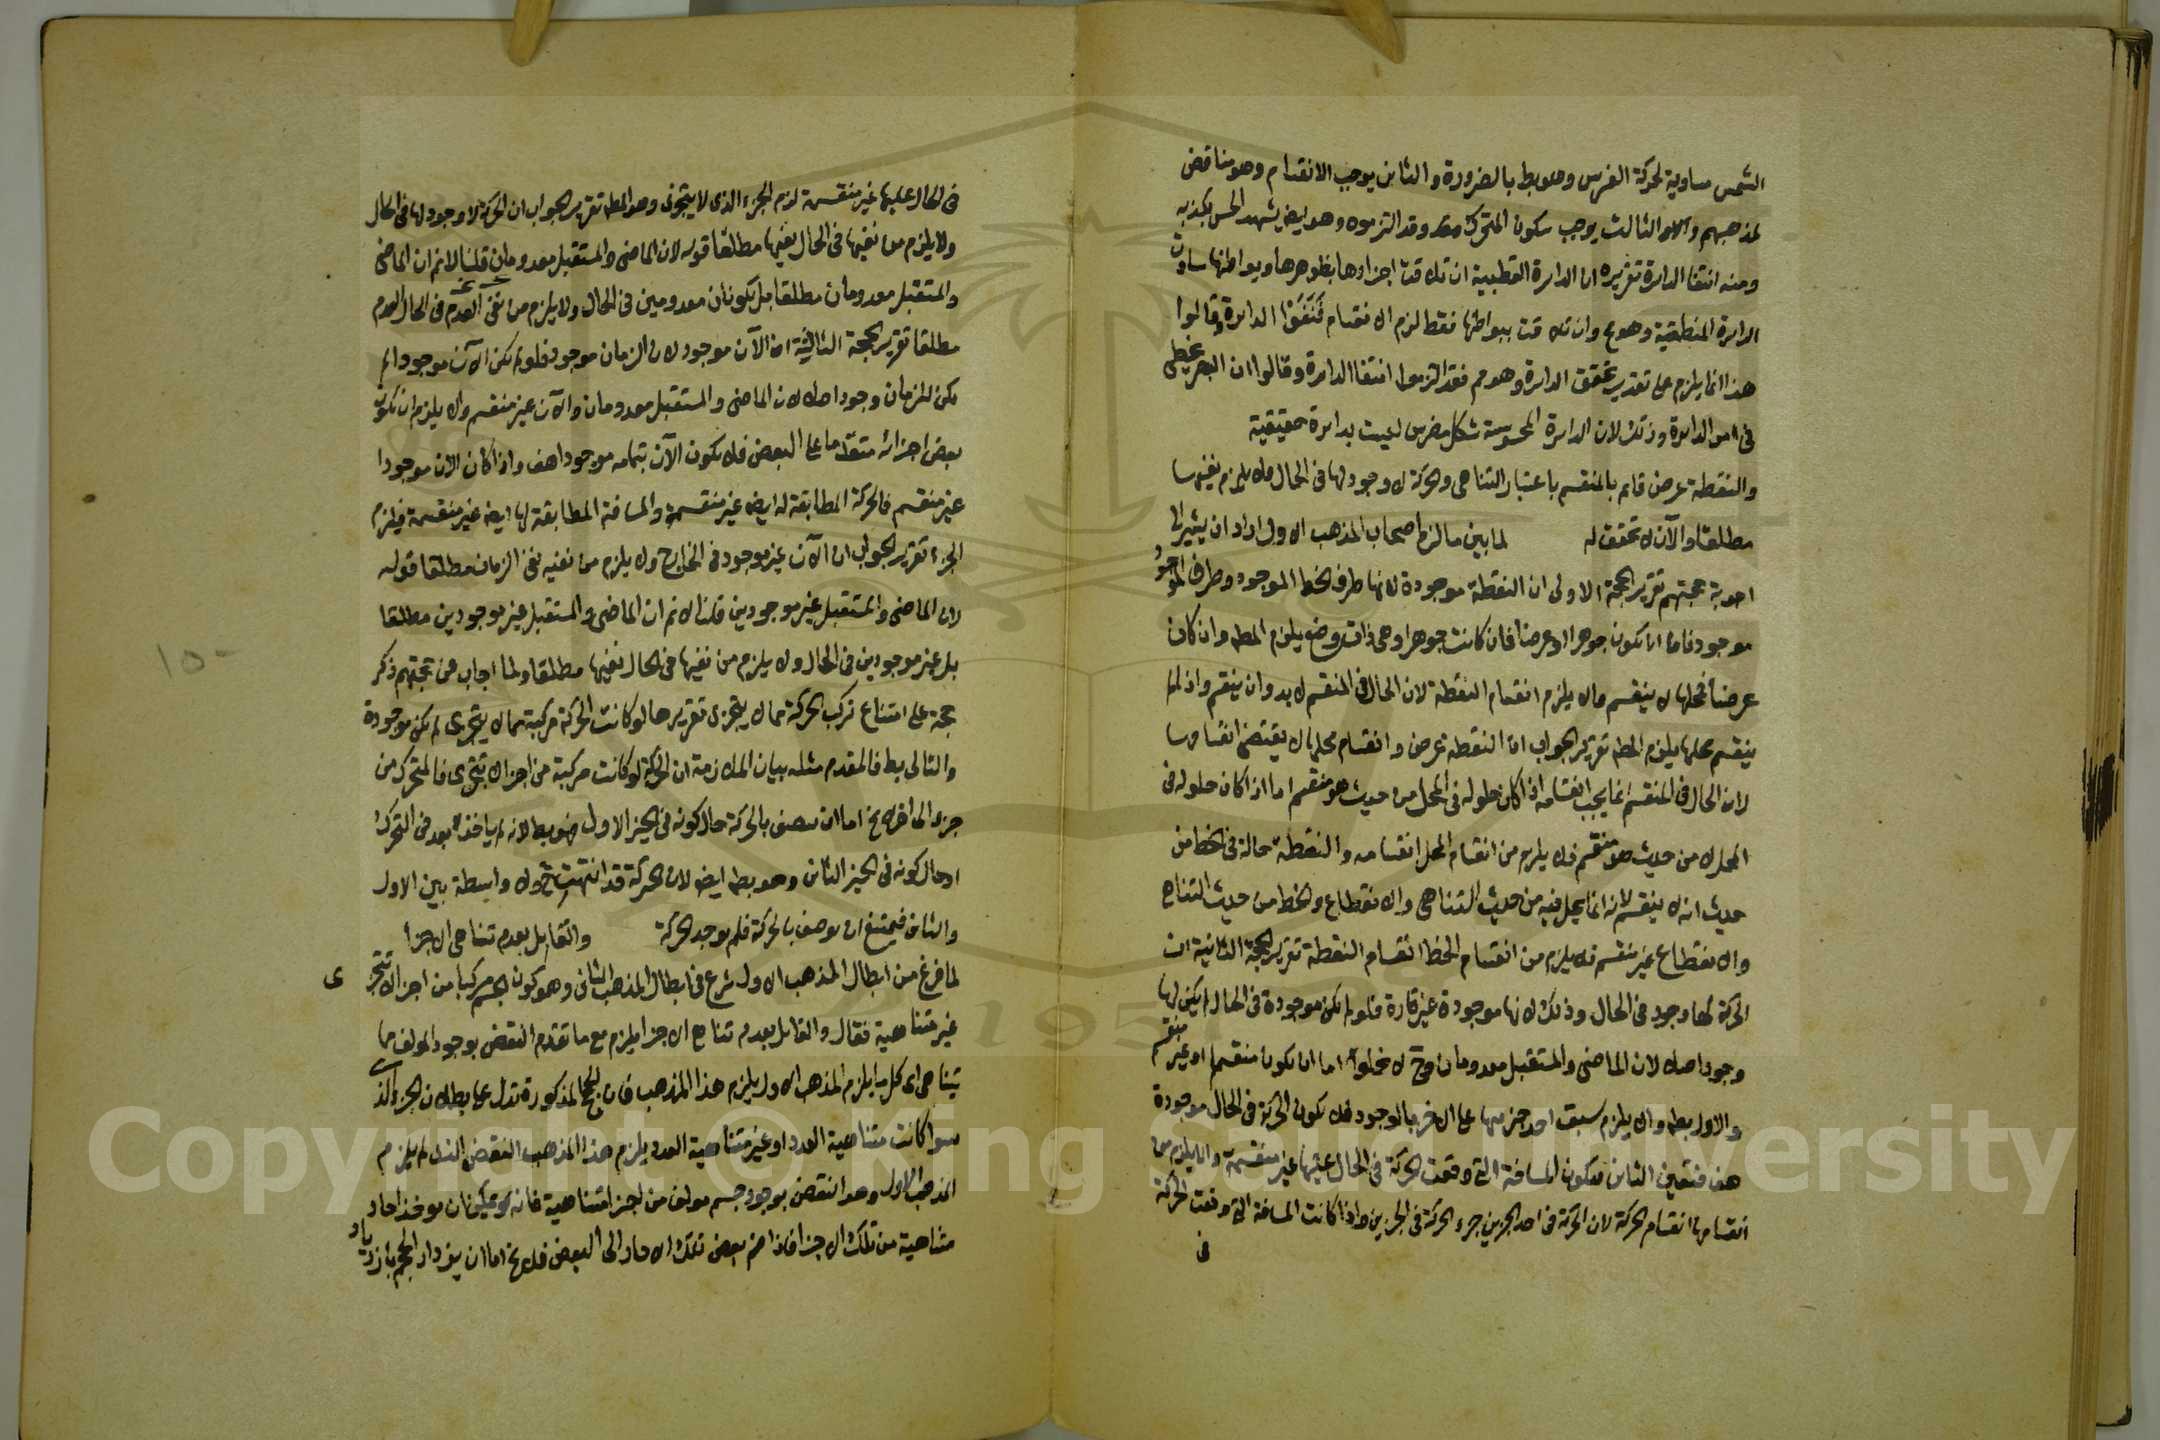 الشمس مساوية لحركة الفرس وهو بط بالضرورة والثانى يوجب الانقسام وهو مناقض
لمذهبهم والثالث يوجب سكون المتحرك وقد التزموه وهو ايض يشهد الحس بكذبه
ومنه انتفا الدائرة تقريره ان الدائرة القطبية ان تلاقت اجزاوها بظواهرها وبواطنها ساوت
الدائرة المنطقية وهو مح وان تلاقت ببواطنها فقط لزم الانقسام فنفوا الدائرة وقالوا
هذا انما يلزم على تقدير تحقق الدائرة وهو مم فقد التزموا انتفا الدائرة وقالوا ان البصر يخطى
فى امر الدائرة وذلك لان الدائرة المحسوسة شكل مضرس ليست بدائرة حقيقية
والنقطة عرض قائم بالمنقسم باعتبار التناهى والحركة لا وجود لها فى الحال ولا يلزم نفيها
مطلقا والآن لا تحقق له لما بين ما لزم اصحاب المذهب الاول اراد ان يشير الى
اجوبة حجتهم تقرير الحجة الاولى ان النقطة موجودة لانها طرف الخط الموجود وطرف الموجود
موجود فاما ان يكون جوهرا او عرضا فان كانت جوهرا وهى ذات وضع يلزم المط وان كان
عرضا فمحلها لا ينقسم والا يلزم انقسام النقطة لان الحال فى المنقسم لا بد وان ينقسم واذا لم
ينقسم محلها يلزم المط تقرير الجواب ان النقطة عرض وانقسام محلها لا يقتضى انقسامها
لان الحال فى المنقسم انما يجب انقسامه اذا كان حلوله فى المحل من حيث هو منقسم اما اذا كان حلوله فى
المحل لا من حيث هو منقسم فلا يلزم من انقسام المحل انقسامه والنقطة حالة فى الخط من
حيث انه لا ينقسم لانه انما يحل فيه من حيث التناهى والانقطاع والخط من حيث التناهى
والانقطاع غير منقسم فلا يلزم من انقسام الخط انقسام النقطة تقرير الحجة الثانية ان
الحركة لها وجود فى الحال وذلك لانها موجودة غير قارة فلو لم تكن موجودة فى الحال لم يكن لها
وجود اصلا لان الماضى والمستقبل معدومان وح لا يخلوا اما ان يكون منقسما او غير منقسم
والاول بط والا يلزم سبق احد جزئيها على الاخر بالوجود فلا تكون الحركة فى الحال موجودة
هف فتعين الثانى فتكون المسافة التى وقعت الحركة فى الحال عليها غير منقسمة والا يلزم من
انقسامها انقسام الحركة لان الحركة فى احد الجزئين جزء الحركة فى الجزئين واذا كانت المسافة التى وقعت الحركة
فى
فى الحال عليها غير منقسمة لزم الجزء الذى لا يتجزى وهو المط تقرير الجواب ان الحركة لا وجود لها فى الحال
ولا يلزم من نفيها فى الحال نفيها مطلقا قوله لان الماضى والمستقبل معدومان قلنا لا نم ان الماضى
والمستقبل معدومان مطلقا بل يكونان معدومين فى الحال ولا يلزم من العدم فى الحال العدم
مطلقا تقرير الحجة الثالثة ان الآن موجود لان الزمان موجود فلو لم يكن الآن موجودا لم
يكن للزمان وجود اصلا لان الماضى والمستقبل معدومان والآن غير منقسم والا يلزم ان يكون
بعض اجزائه متقدما على البعض فلا يكون الآن بتمامه موجودا هف واذا كان الآن موجودا
غير منقسم فالحركة المطابقة له ايض غير منقسمة والمسافة المطابقة لها ايض غير منقسمة فيلزم
الجزء تقرير الجواب ان الآن غير موجود فى الخارج ولا يلزم من نفيه نفى الزمان مطلقا قوله
لان الماضى والمستقبل غير موجودين قلنا لا نم ان الماضى والمستقبل غير موجودين مطلقا
بل غير موجودين فى الحال ولا يلزم من نفيها فى الحال نفيها مطلقا ولما اجاب عن حجتهم ذكر
حجة على امتناع تركب الحركة مما لا يتجزى تقريرها لو كانت الحركة مركبة مما لا يتجزى لم تكن موجودة
والتالى بط فالمقدم مثله بيان الملازمة ان الحركة لو كانت مركبة من اجزا لا تتجزى فالمتحرك من
جزء الى اخر لا يخ اما ان يتصف بالحركة حال كونه فى الحيز الاول فهو بط لانه لم ياخذ بعد فى التحرك
او حال كونه فى الحيز الثانى وهو بط ايض لان الحركة قد انتهت ح ولا واسطة بين الاول
والثانى فيمتنع ان يوصف بالحركة فلم يوجد الحركة والقايل بعدم تناهى الاجزا
لما فرغ من ابطال المذهب الاول شرع فى ابطال المذهب الثانى وهو كون الجسم مركبا من اجزا لا تتجزى
غير متناهية فقال والقايل بعدم تناهى الاجزا يلزم مع ما تقدم النقض بوجود المولف مما
يتناهى اى كل ما يلزم المذهب الاول يلزم هذا المذهب فان الحجج المذكورة تدل على بطلان الجزء الذى
سوا كانت متناهية العدد او غير متناهية العدد يلزم هذا المذهب النقض الذى لم يلزم
المذهب الاول وهو النقض بوجود جسم مولف من اجزا متناهية فانه يمكن ان يوخذ احاد
متناهية من تلك الاجزا فاذا ضم بعض تلك الاحاد الى البعض فلا يخ اما ان يزداد الحجم بازدياد
١٥٠
Copyright © King Saud University
1957